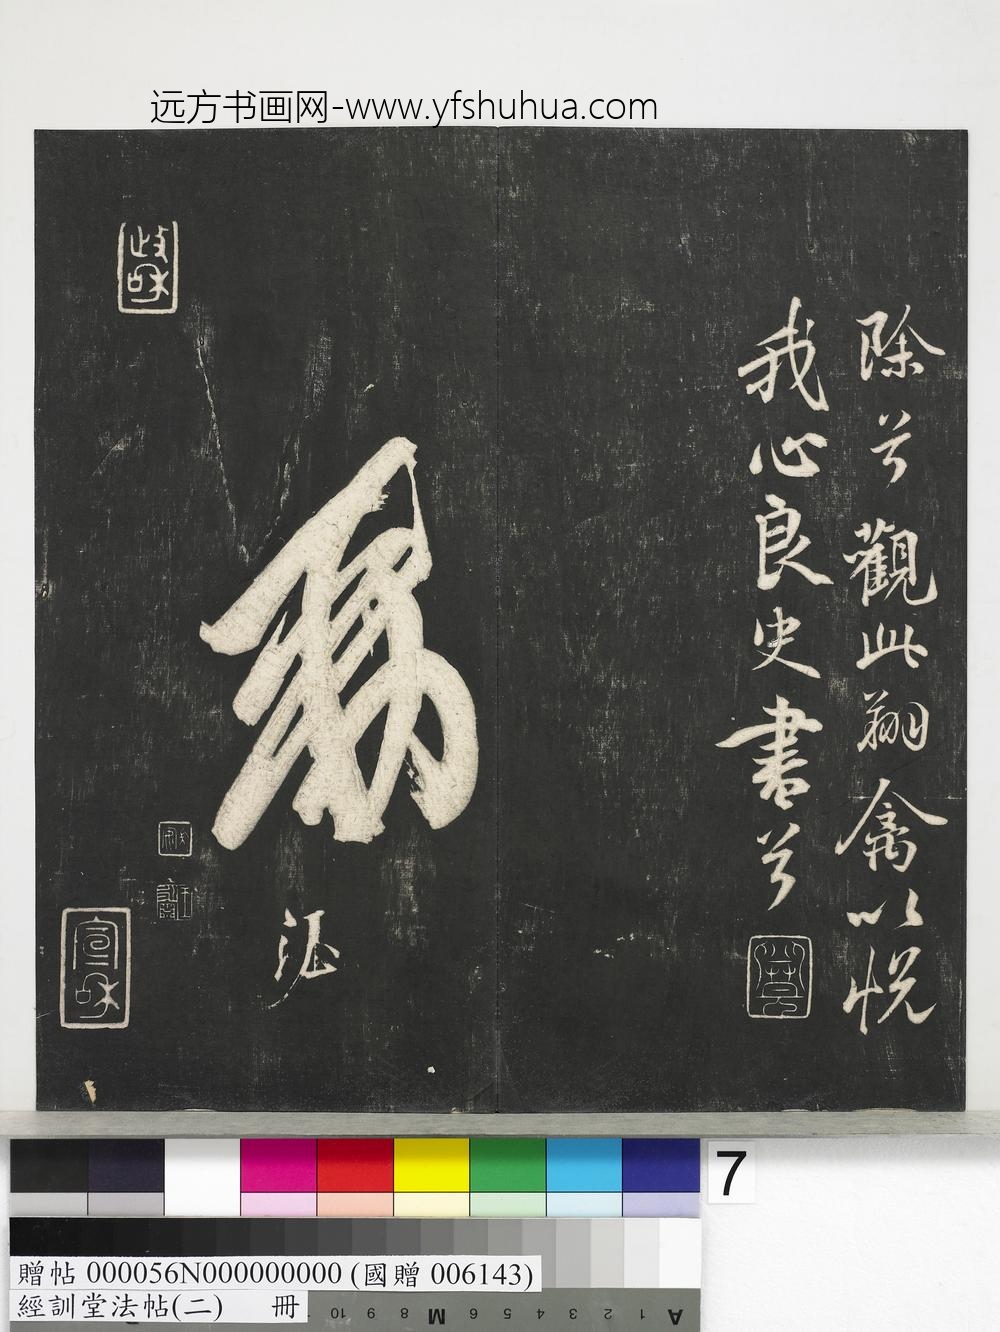 远方书画网-www.yfshuhua.com
除兮觀此翔禽以悅
我心良史書兮
政和
宣和
7
贈帖 000056N000000000 (國贈 006143)
經訓堂法帖(二) 冊
10 9 8 M 6 5 4 3 2 1 A